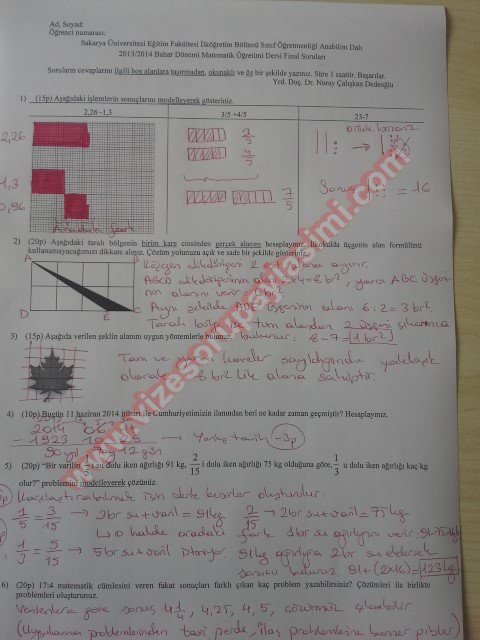 Ad, Soyad:
Öğrenci numarası:
Sakarya Üniversitesi Eğitim Fakültesi İlköğretim Bölümü Sınıf Öğretmenliği Anabilim Dalı
2013/2014 Bahar Dönemi Matematik Öğretimi Dersi Final Soruları
Soruların cevaplarını ilgili boş alanlara taşırmadan, okunaklı ve öz bir şekilde yazınız. Süre 1 saattir. Başarılar.
Yrd. Doç. Dr. Nuray Çalışkan Dedeoğlu
1) (15p) Aşağıdaki işlemlerin sonuçlarını modelleyerek gösteriniz.
2,26 -1,3 3/5 +4/5 23-7
2,26
3/5
4/5
1,3
7/5
Sonuç = 16
0,96
2) (20p) Aşağıdaki taralı bölgenin birim kare cinsinden gerçek alanını hesaplayınız. İlkokulda üçgenin alan formülünü
kullanamayacağımızı dikkate alınız. Çözüm yolunuzu açık ve sade bir şekilde gösteriniz.
A B
Köşegen dikdörtgeni 2 eşit alana ayırır.
ABCD dikdörtgeninin alanı 2x4=8 br², yarısı ABC üçge-
ninin alanını verir
Aynı şekilde ADE üçgeninin alanı 6:2=3 br²
D E C
Taralı bölge tüm alandan 2 üçgeni çıkarınca
bulunur: 8-7=1br²
3) (15p) Aşağıda verilen şeklin alanını uygun yöntemlerle bulunuz.
Tam ve yarım kareler sayıldığında yaklaşık
olarak 8 br² lik alana sahiptir.
4) (10p) Bugün 11 haziran 2014 itibari ile Cumhuriyetimizin ilanından beri ne kadar zaman geçmiştir? Hesaplayınız.
2014
1923 10
→ Yanlış tarih -3p
90 yıl 12 gün
5) (20p) "Bir varilin 1/5 i su dolu iken ağırlığı 91 kg, 2/15 i dolu iken ağırlığı 75 kg olduğuna göre, 1/3 ü dolu iken ağırlığı kaç kg
olur?" problemini modelleyerek çözünüz.
Karşılaştırabilmek için denk kesirler oluşturulur:
1/5 = 3/15 → 3br su+varil=91kg 2/15 → 2br su+varil=75kg
O halde aradaki fark 1br su ağırlığını verir. 91-75=16kg
1/3 = 5/15 → 5br su+varil isteniyor. 91kg ağırlığa 2br su eklersek
sonucu buluruz 91+(2x16)=123kg
6) (20p) 17:4 matematik cümlesini veren fakat sonuçları farklı çıkan kaç problem yazabilirsiniz? Çözümleri ile birlikte
problemleri oluşturunuz.
Verilenlere göre sonuç 4 1/4, 4,25, 4, 5, çıkabilir.
www.vizesorupaylasimi.com